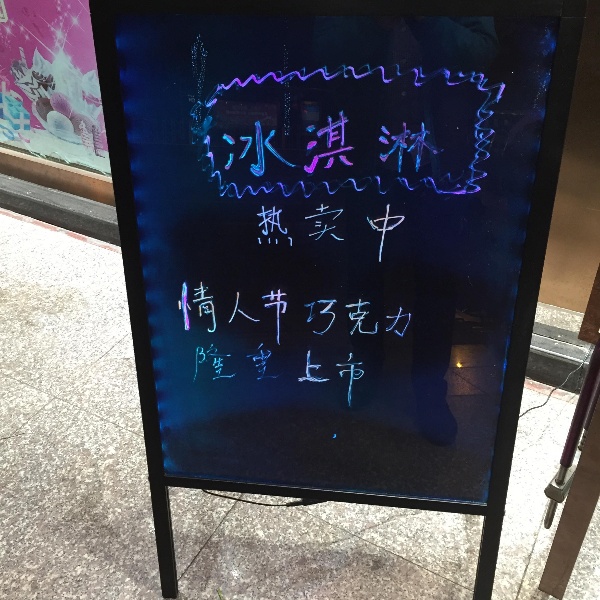 冰淇淋
热卖中
情人节巧克力
隆重上市